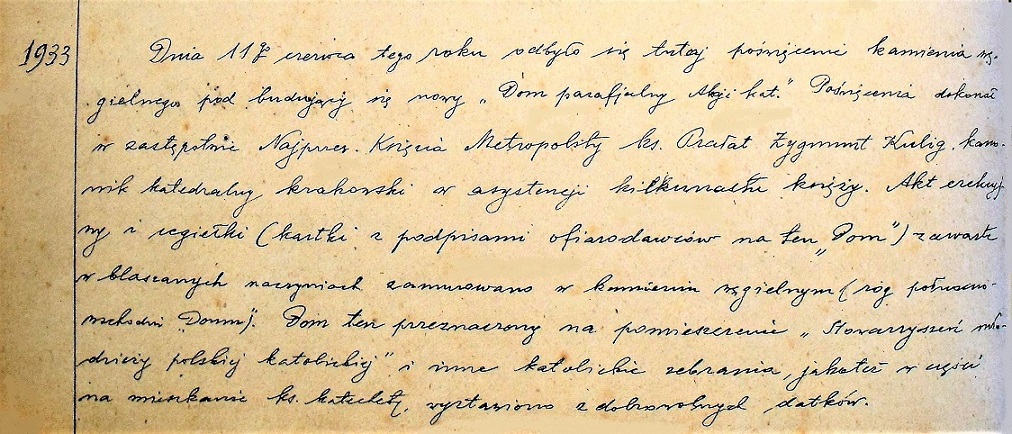 1933 Dnia 11go czerwca tego roku odbyło się tutaj poświęcenie kamienia wę-
gielnego pod budujący się nowy „Dom parafjalny Akcji kat.” Poświęcenia dokonał
w zastępstwie Najprzew. Księcia Metropolity ks. Prałat Zygmunt Kulig, kano-
nik katedralny krakowski w asystencji kilkunastu księży. Akt erekcyj-
ny i cegiełki (kartki z podpisami ofiarodawców na ten „Dom”) zawarte
w blaszanych naczyniach zamurowano w kamieniu węgielnym (róg południo-
wschodni „Domu”). Dom ten przeznaczony na pomieszczenie „Stowarzyszeń mło-
dzieży polskiej katolickiej” i inne katolickie zebrania, jakoteż w części
na mieszkanie ks. katechety, wystawiono z dobrowolnych datków.